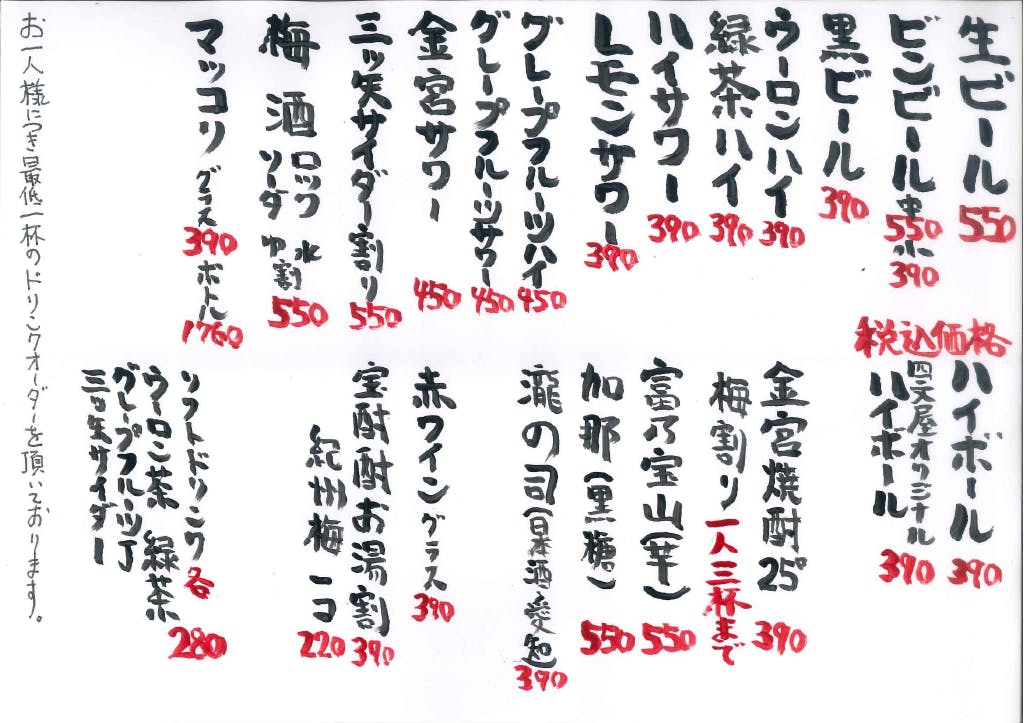 生ビール 550
ビンビール 中 550 小 390
黒ビール 390
ウーロンハイ 390
緑茶ハイ 390
ハイサワー 390
レモンサワー 390
グレープフルーツハイ 450
グレープフルーツサワー 450
金宮サワー 450
三ッ矢サイダー割り 550
梅酒 ロック 水割
ソーダ ゆ割 550
マッコリ グラス 390 ボトル 1760
税込価格
ハイボール 390
四文屋オリジナル
ハイボール 390
金宮焼酎25° 390
梅割り 一人三杯まで
富乃宝山(芋) 550
加那(黒糖) 550
瀧の司(日本酒・愛知) 390
赤ワイングラス 390
宝酎酎お湯割 390
紀州梅 一コ 220
ソフトドリンク 各 280
ウーロン茶 緑茶
グレープフルーツJ
三ッ矢サイダー
お一人様につき最低一杯のドリンクオーダーを頂いております。